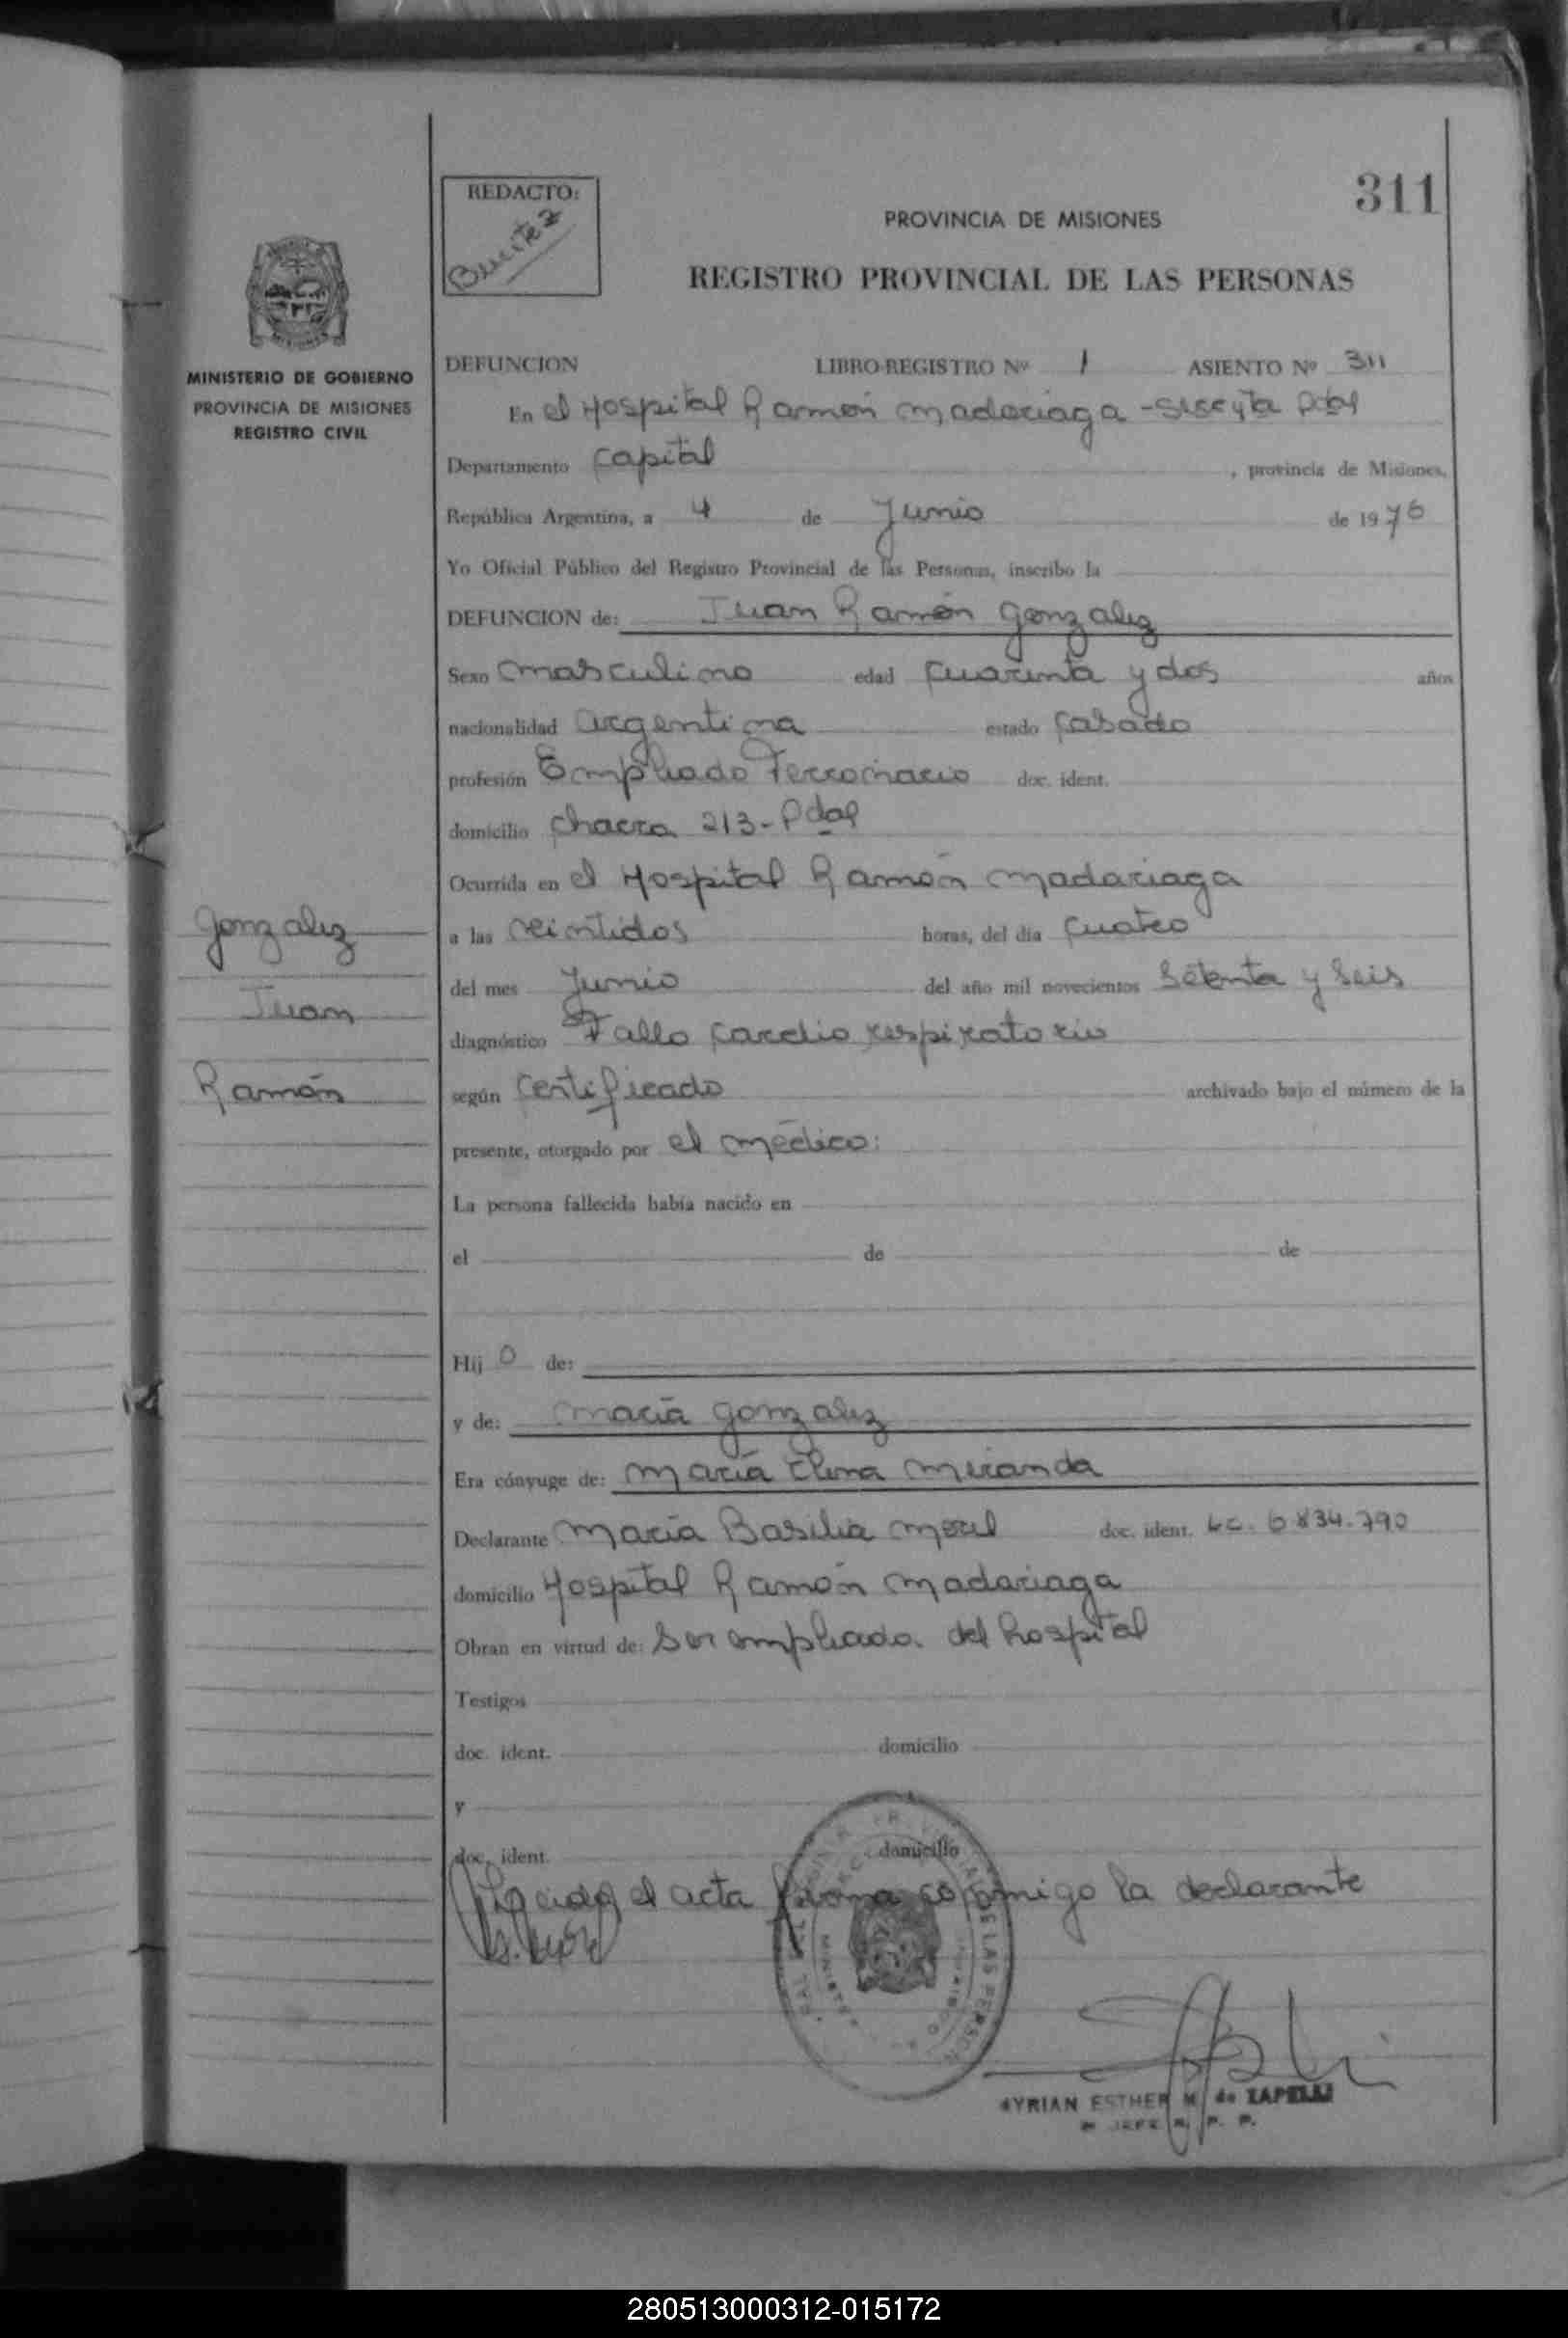 311
REDACTO:
Benitez
PROVINCIA DE MISIONES
REGISTRO PROVINCIAL DE LAS PERSONAS
MINISTERIO DE GOBIERNO
PROVINCIA DE MISIONES
REGISTRO CIVIL
DEFUNCION LIBRO-REGISTRO Nº 1 ASIENTO Nº 311
En el Hospital Ramón Madariaga - Pdas
Departamento Capital, provincia de Misiones,
República Argentina, a 4 de Junio de 1976
Yo Oficial Público del Registro Provincial de las Personas, inscribo la
DEFUNCION de: Juan Ramón Gonzalez
Sexo masculino edad cuarenta y dos años
nacionalidad argentina estado casado
profesión Empleado Ferroviario doc. ident.
domicilio chacra 213 - Pdas
Ocurrida en el Hospital Ramón Madariaga
Gonzalez
a las veintidos horas, del día cuatro
del mes Junio del año mil novecientos setenta y seis
Juan
diagnóstico Fallo cardio respiratorio
Ramón
según certificado archivado bajo el número de la
presente, otorgado por el médico:
La persona fallecida había nacido en
el de de
Hij o de:
y de: María Gonzalez
Era cónyuge de: María Elena Miranda
Declarante María Basilia Morel doc. ident. LC. 6834.790
domicilio Hospital Ramón Madariaga
Obran en virtud de: ser empleada del hospital
Testigos
doc. ident. domicilio
y
doc. ident. domicilio
el acta firma conmigo la declarante
MYRIAN ESTHER M. de ZAPELLI